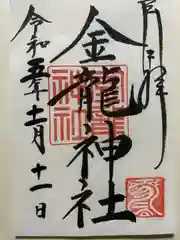 奉拝
金龍神社
令和五年十二月十一日